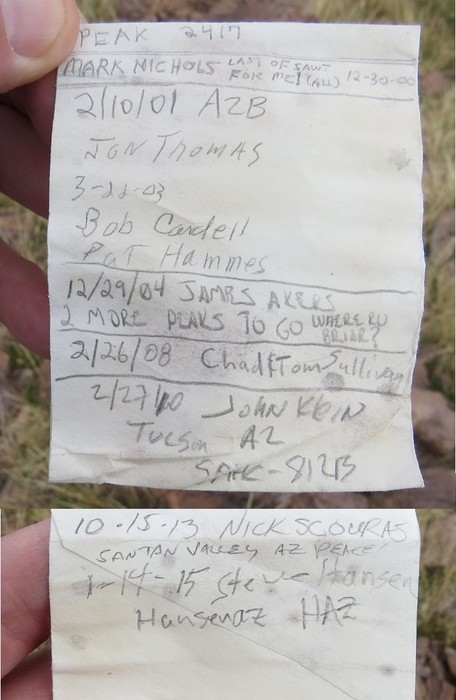 PEAK 2417
MARK NICHOLS LAST OF SAWT
FOR ME! (ALL) 12-30-00
2/10/01 AZB
JON THOMAS
3-22-03
Bob Cardell
PaT Hammes
12/29/04 JAMES AKERS
2 MORE PEAKS TO GO WHERE RU
BRIAR?
2/26/08 Chad & Tom Sullivan
2/27/10 JOHN KLEIN
TUCSON AZ
10-15-13 NICK SCOURAS
SANTAN VALLEY AZ PEACE!
1-14-15 Steve Hansen
Hansenaz HAZ